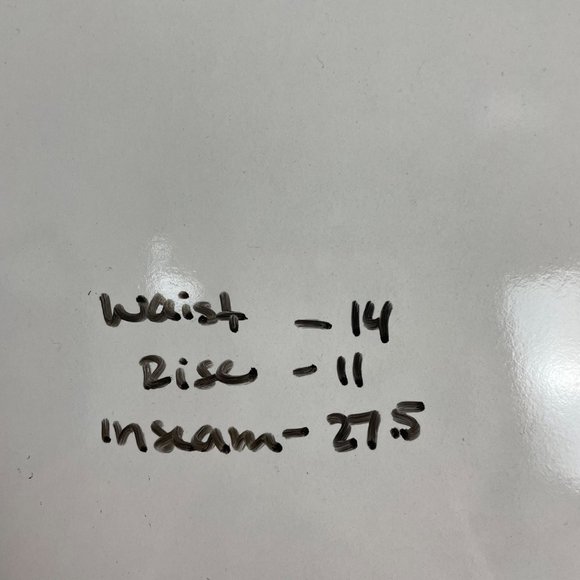 Waist - 14
Rise - 11
inseam - 27.5